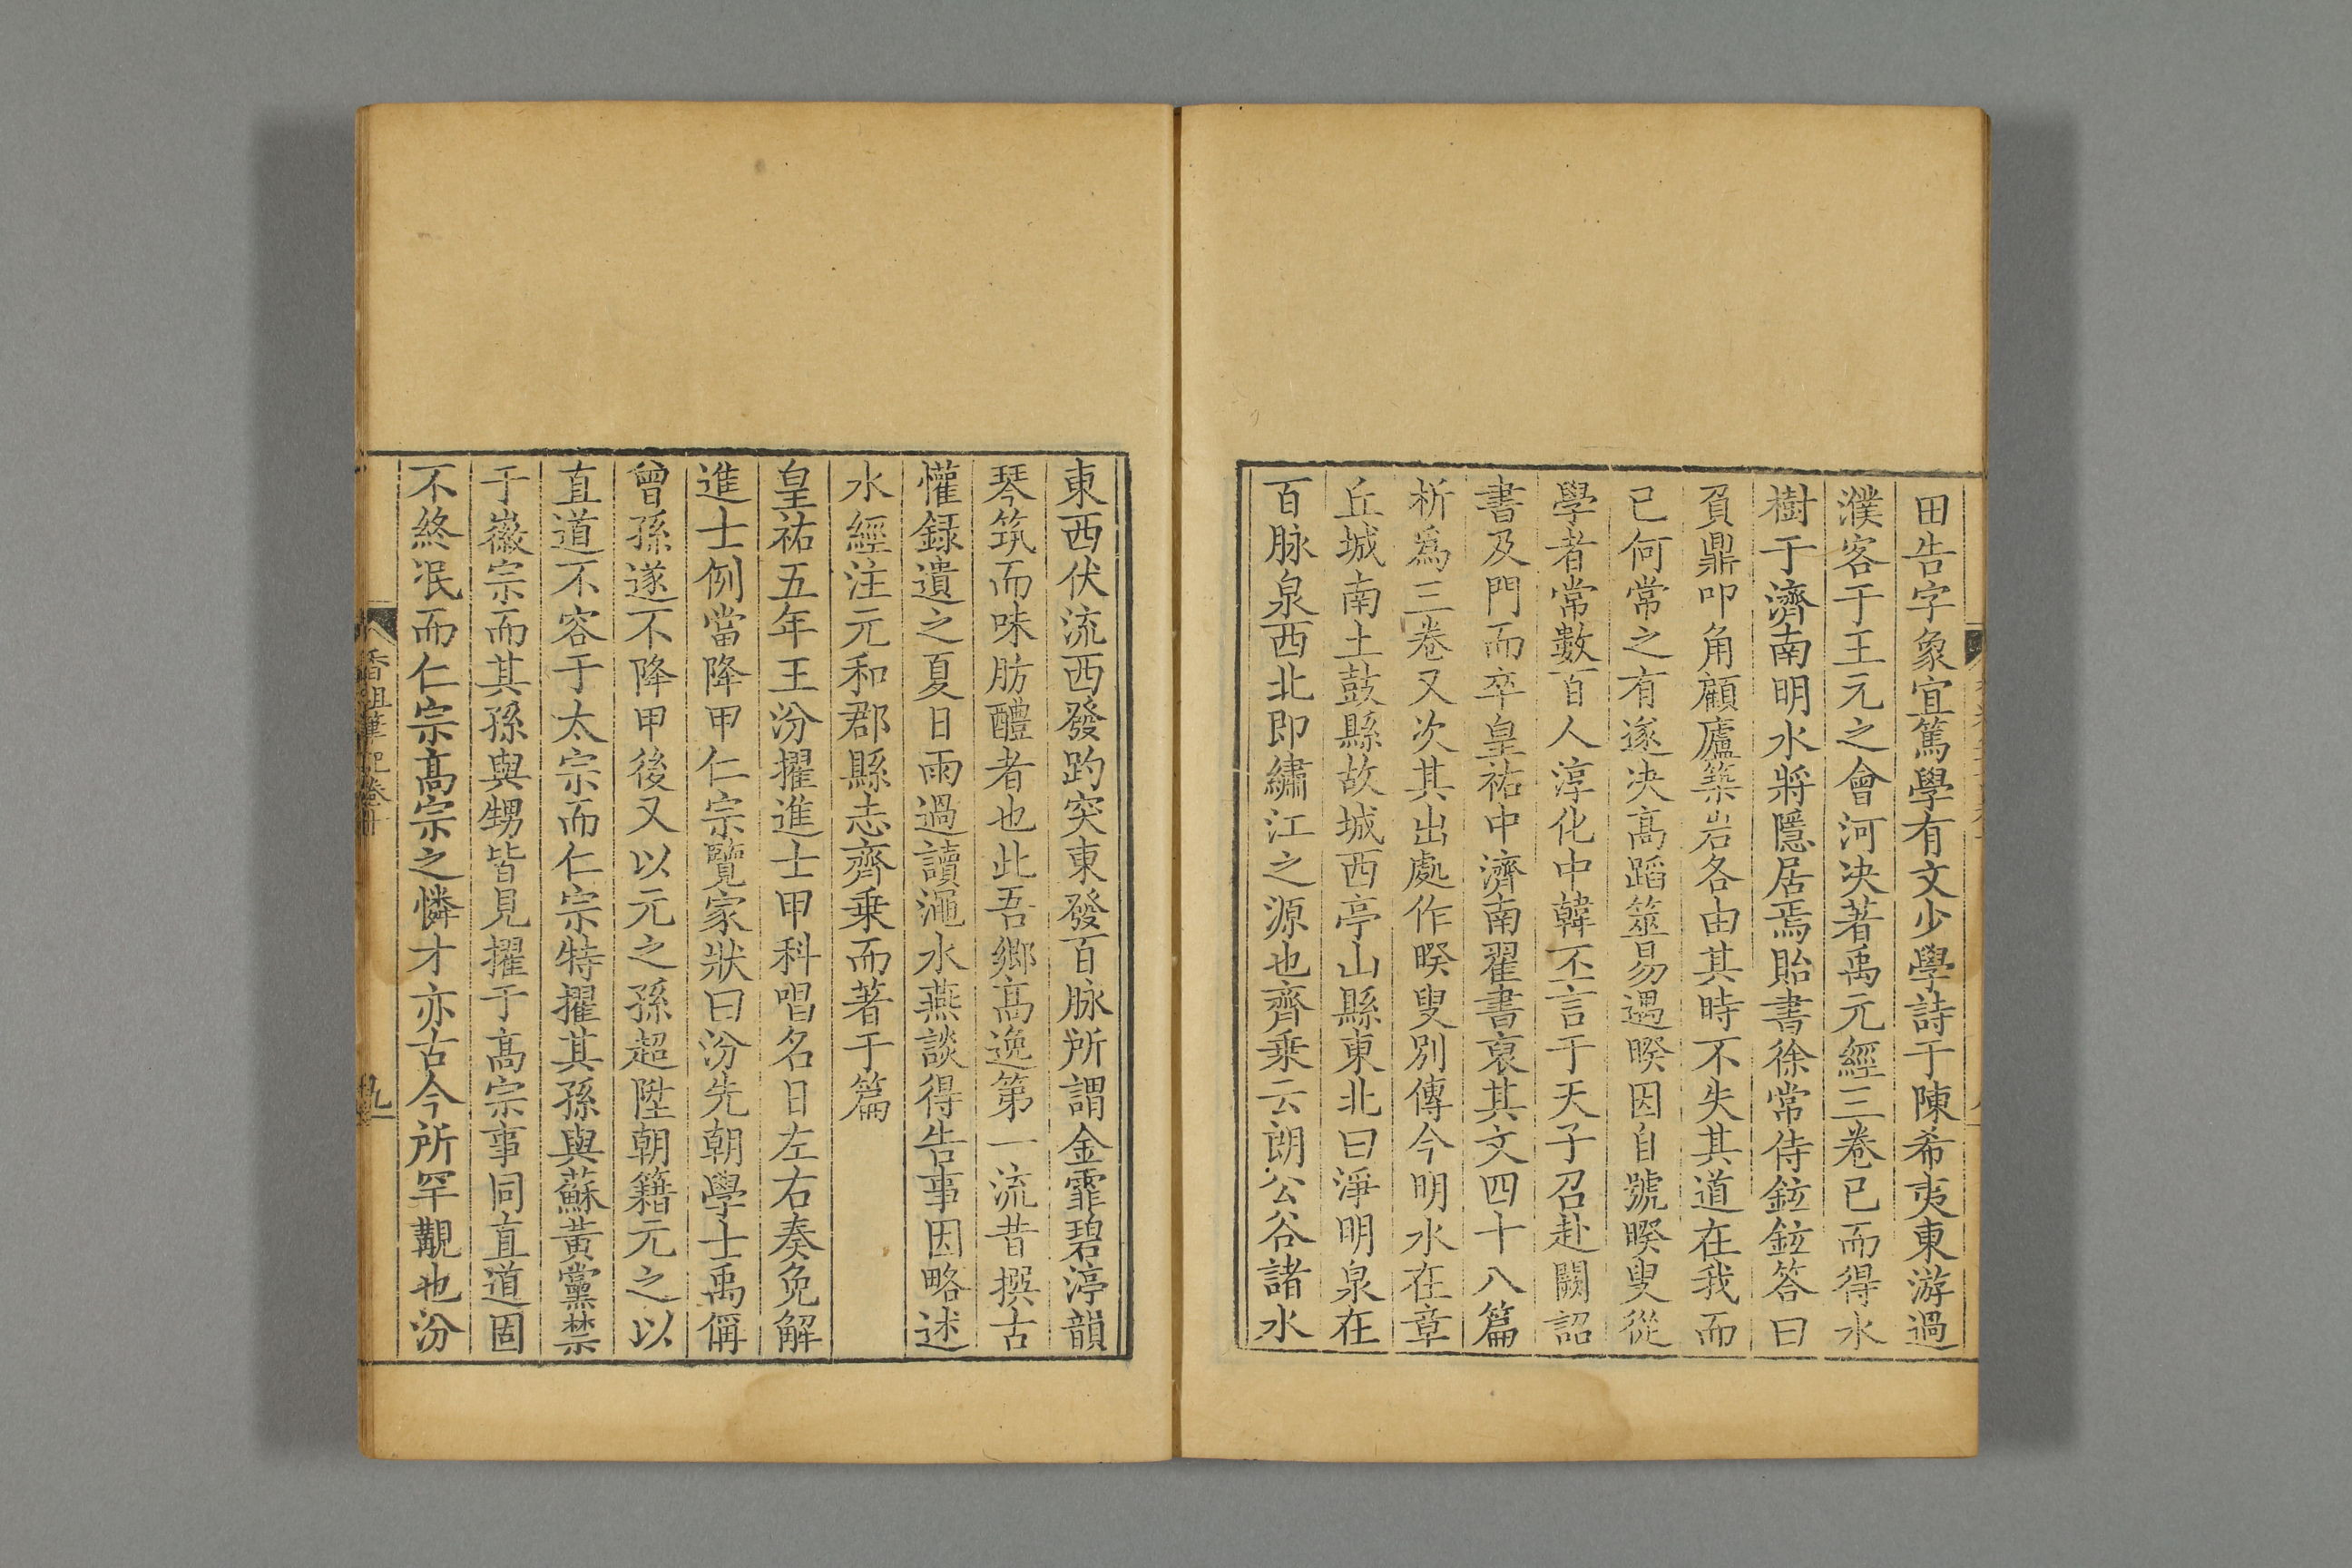 田告字象宜篤學有文少學詩于陳希夷東游過
濮客于王元之會河决著禹元經三卷已而得水
樹于濟南明水將隱居焉貽書徐常侍鉉鉉答曰
負鼎叩角顧廬築岩各由其時不失其道在我而
已何常之有遂决高蹈筮易遇暌因自號暌叟從
學者常數百人淳化中韓丕言于天子召赴闕詔
書及門而卒皇祐中濟南翟書裒其文四十八篇
析爲三卷又次其出處作暌叟別傳今明水在章
丘城南土鼓縣故城西亭山縣東北曰淨明泉在
百脉泉西北即繡江之源也齊乗云朗公谷諸水
東西伏流西發趵突東發百脉所謂金霏碧渟韻
琴筑而味肪醴者也此吾鄉高逸第一流昔撰古
懽録遺之夏日雨過讀澠水燕談得告事因略述
水經注元和郡縣志齊乗而著于篇
皇祐五年王汾擢進士甲科唱名日左右奏免解
進士例當降甲仁宗覽家狀曰汾先朝學士禹偁
曾孫遂不降甲後又以元之孫超陞朝籍元之以
直道不容于太宗而仁宗特擢其孫與蘇黃黨禁
于徽宗而其孫與甥皆見擢于高宗事同直道固
不終泯而仁宗高宗之憐才亦古今所罕覯也汾
香祖筆記卷十
九